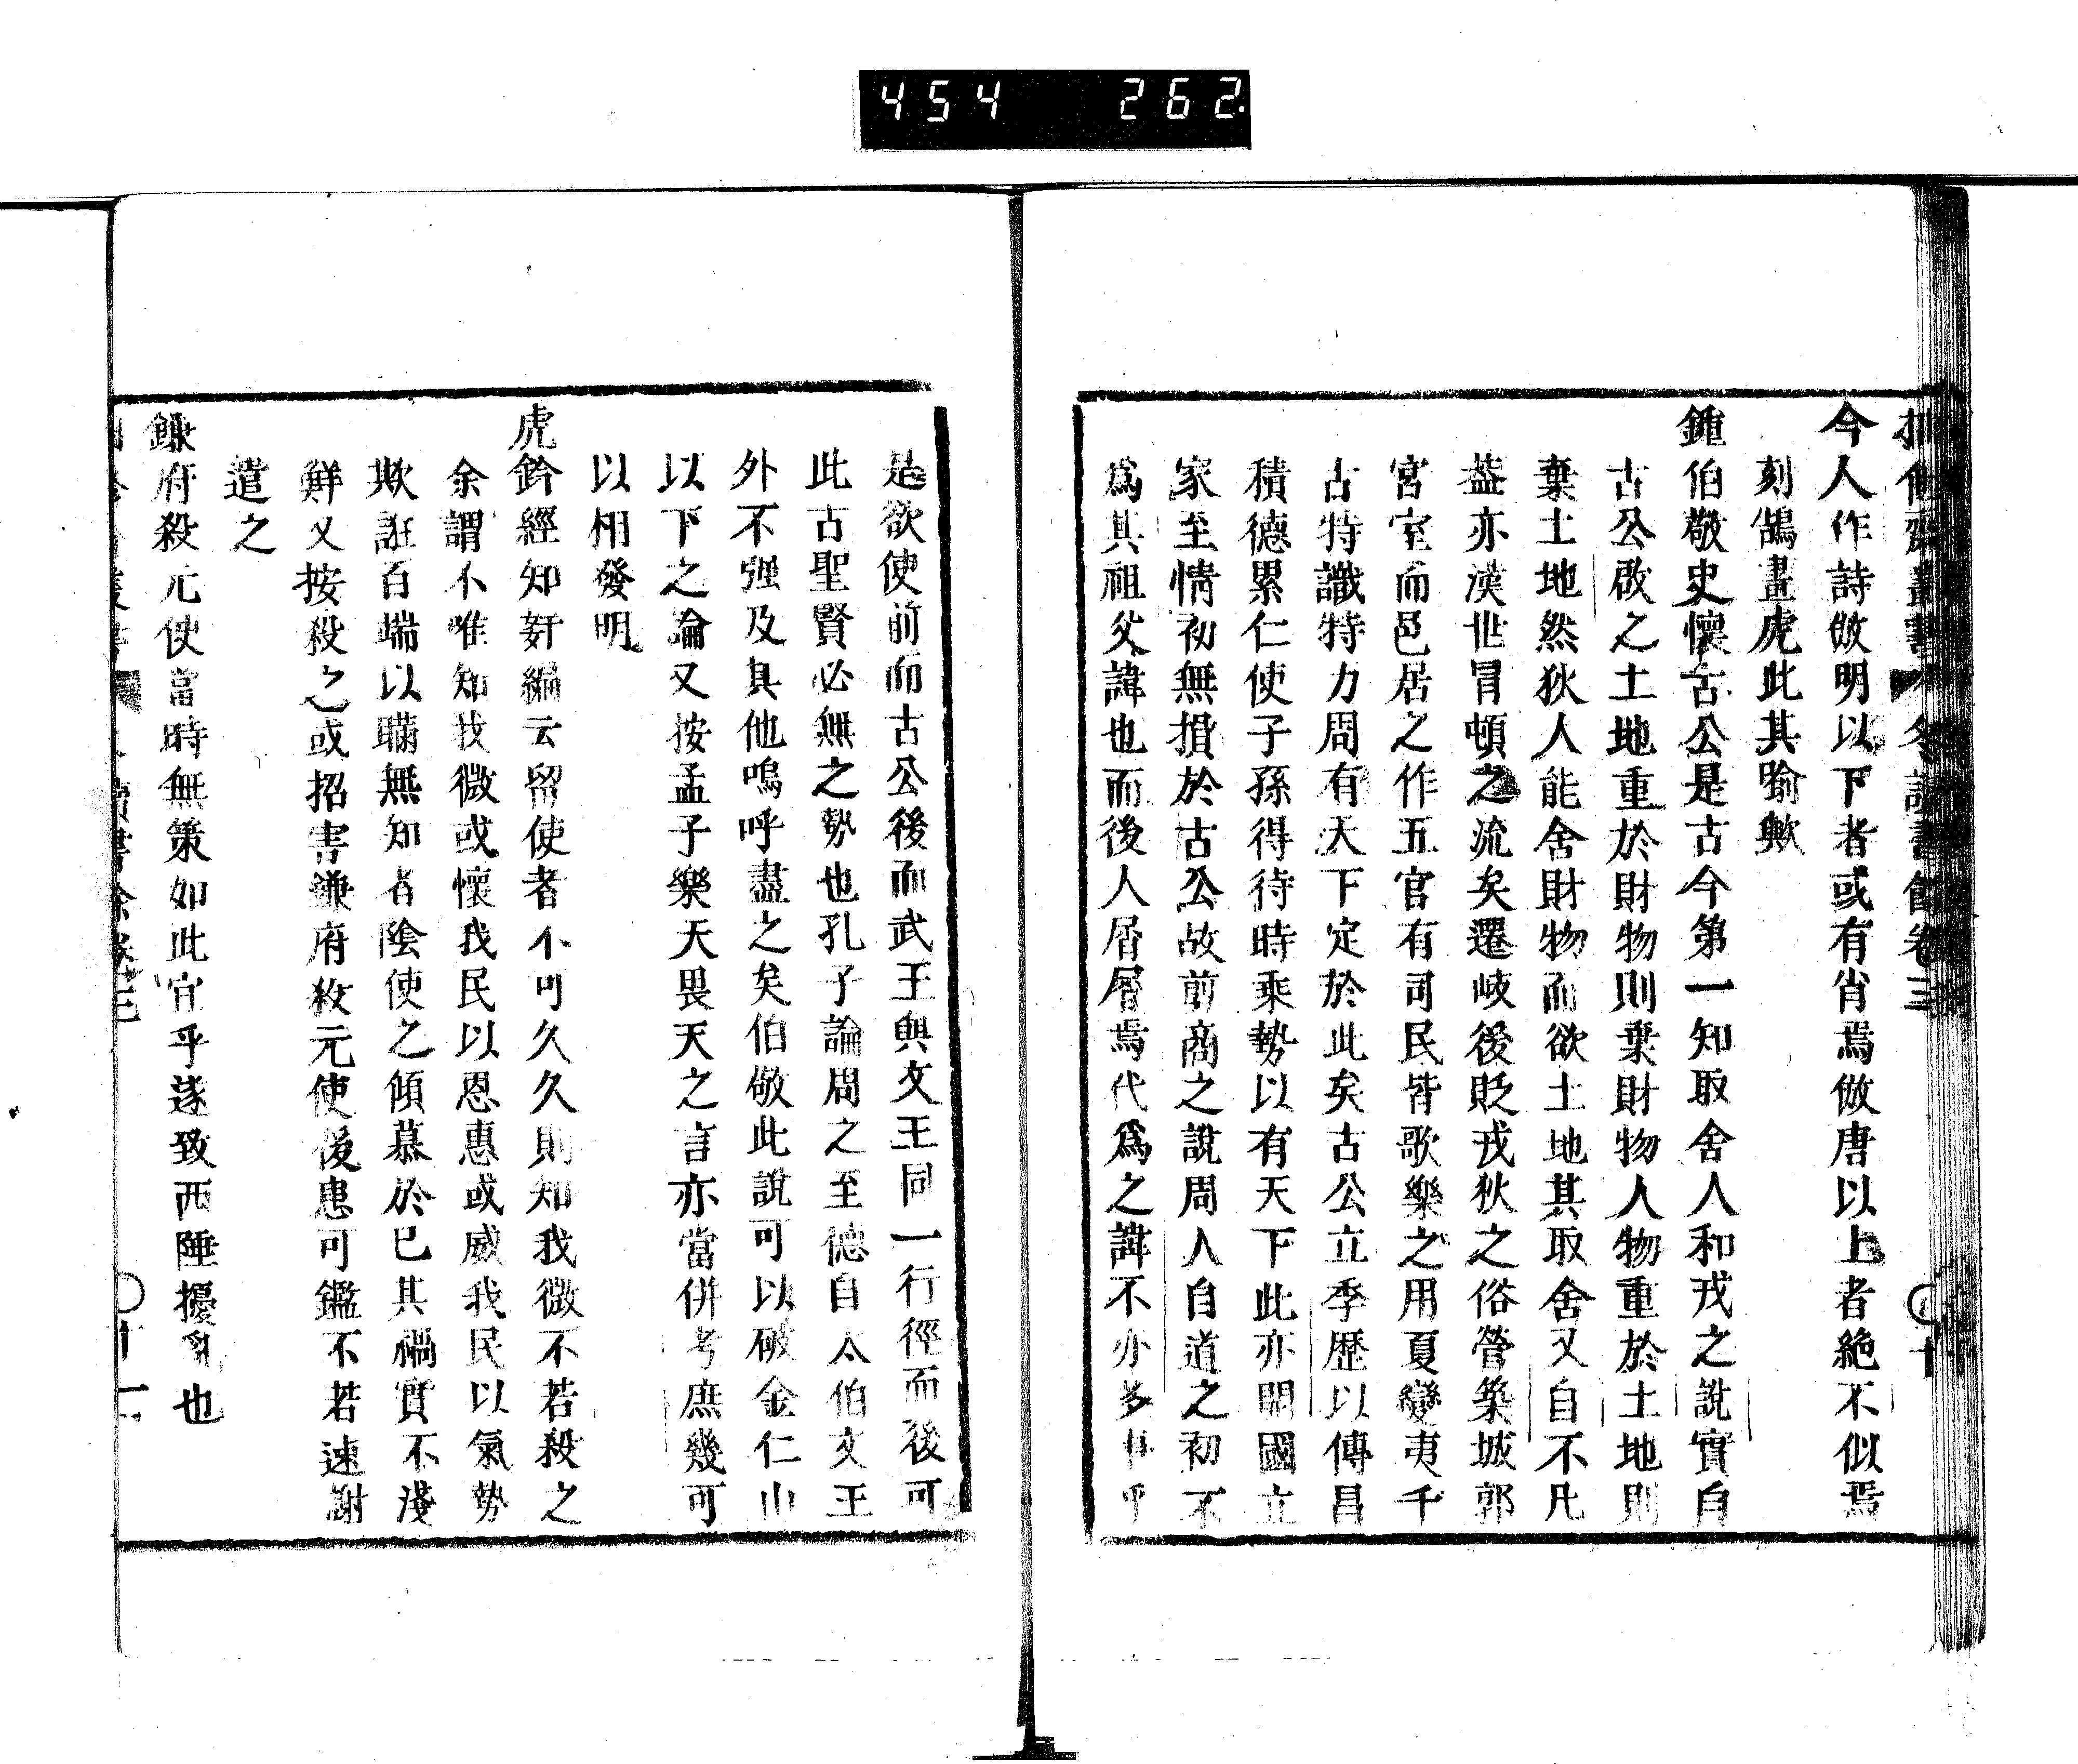 454 262
今人作詩倣明以下者或有肖焉倣唐以上者絶不似焉
刻鵠畫虎此其喻歟
鍾伯敬史懷古公是古今第一知取舍人和戎之說實自
古公啟之土地重於財物則棄財物人物重於土地則
棄土地然狄人能舍財物而欲土地其取舍又自不凡
葢亦漢世冒頓之流矣遷岐後貶戎狄之俗營築城郭
宮室而邑居之作五官有司民皆歌樂之用夏變夷千
古特識特力周有天下定於此矣古公立季歷以傳昌
積德累仁使子孫得待時乘勢以有天下此亦開國立
家至情初無損於古公故翦商之說周人自道之初不
爲其祖父諱也而後人層層焉代爲之諱不亦多事乎
是欲使前而古公後而武王與文王同一行徑而後可
此古聖賢必無之勢也孔子論周之至德自太伯文王
外不强及其他嗚呼盡之矣伯敬此說可以破金仁山
以下之論又按孟子樂天畏天之言亦當併考庶幾可
以相發明
虎鈐經知奸編云留使者不可久久則知我微不若殺之
余謂不唯知我微或懷我民以恩惠或威我民以氣勢
欺誑百端以聾無知者陰使之傾慕於己其禍實不淺
鮮又按殺之或招害鎌府殺元使後患可鑑不若速謝
遣之
鎌府殺元使當時無策如此宜乎遂致西陲擾亂也